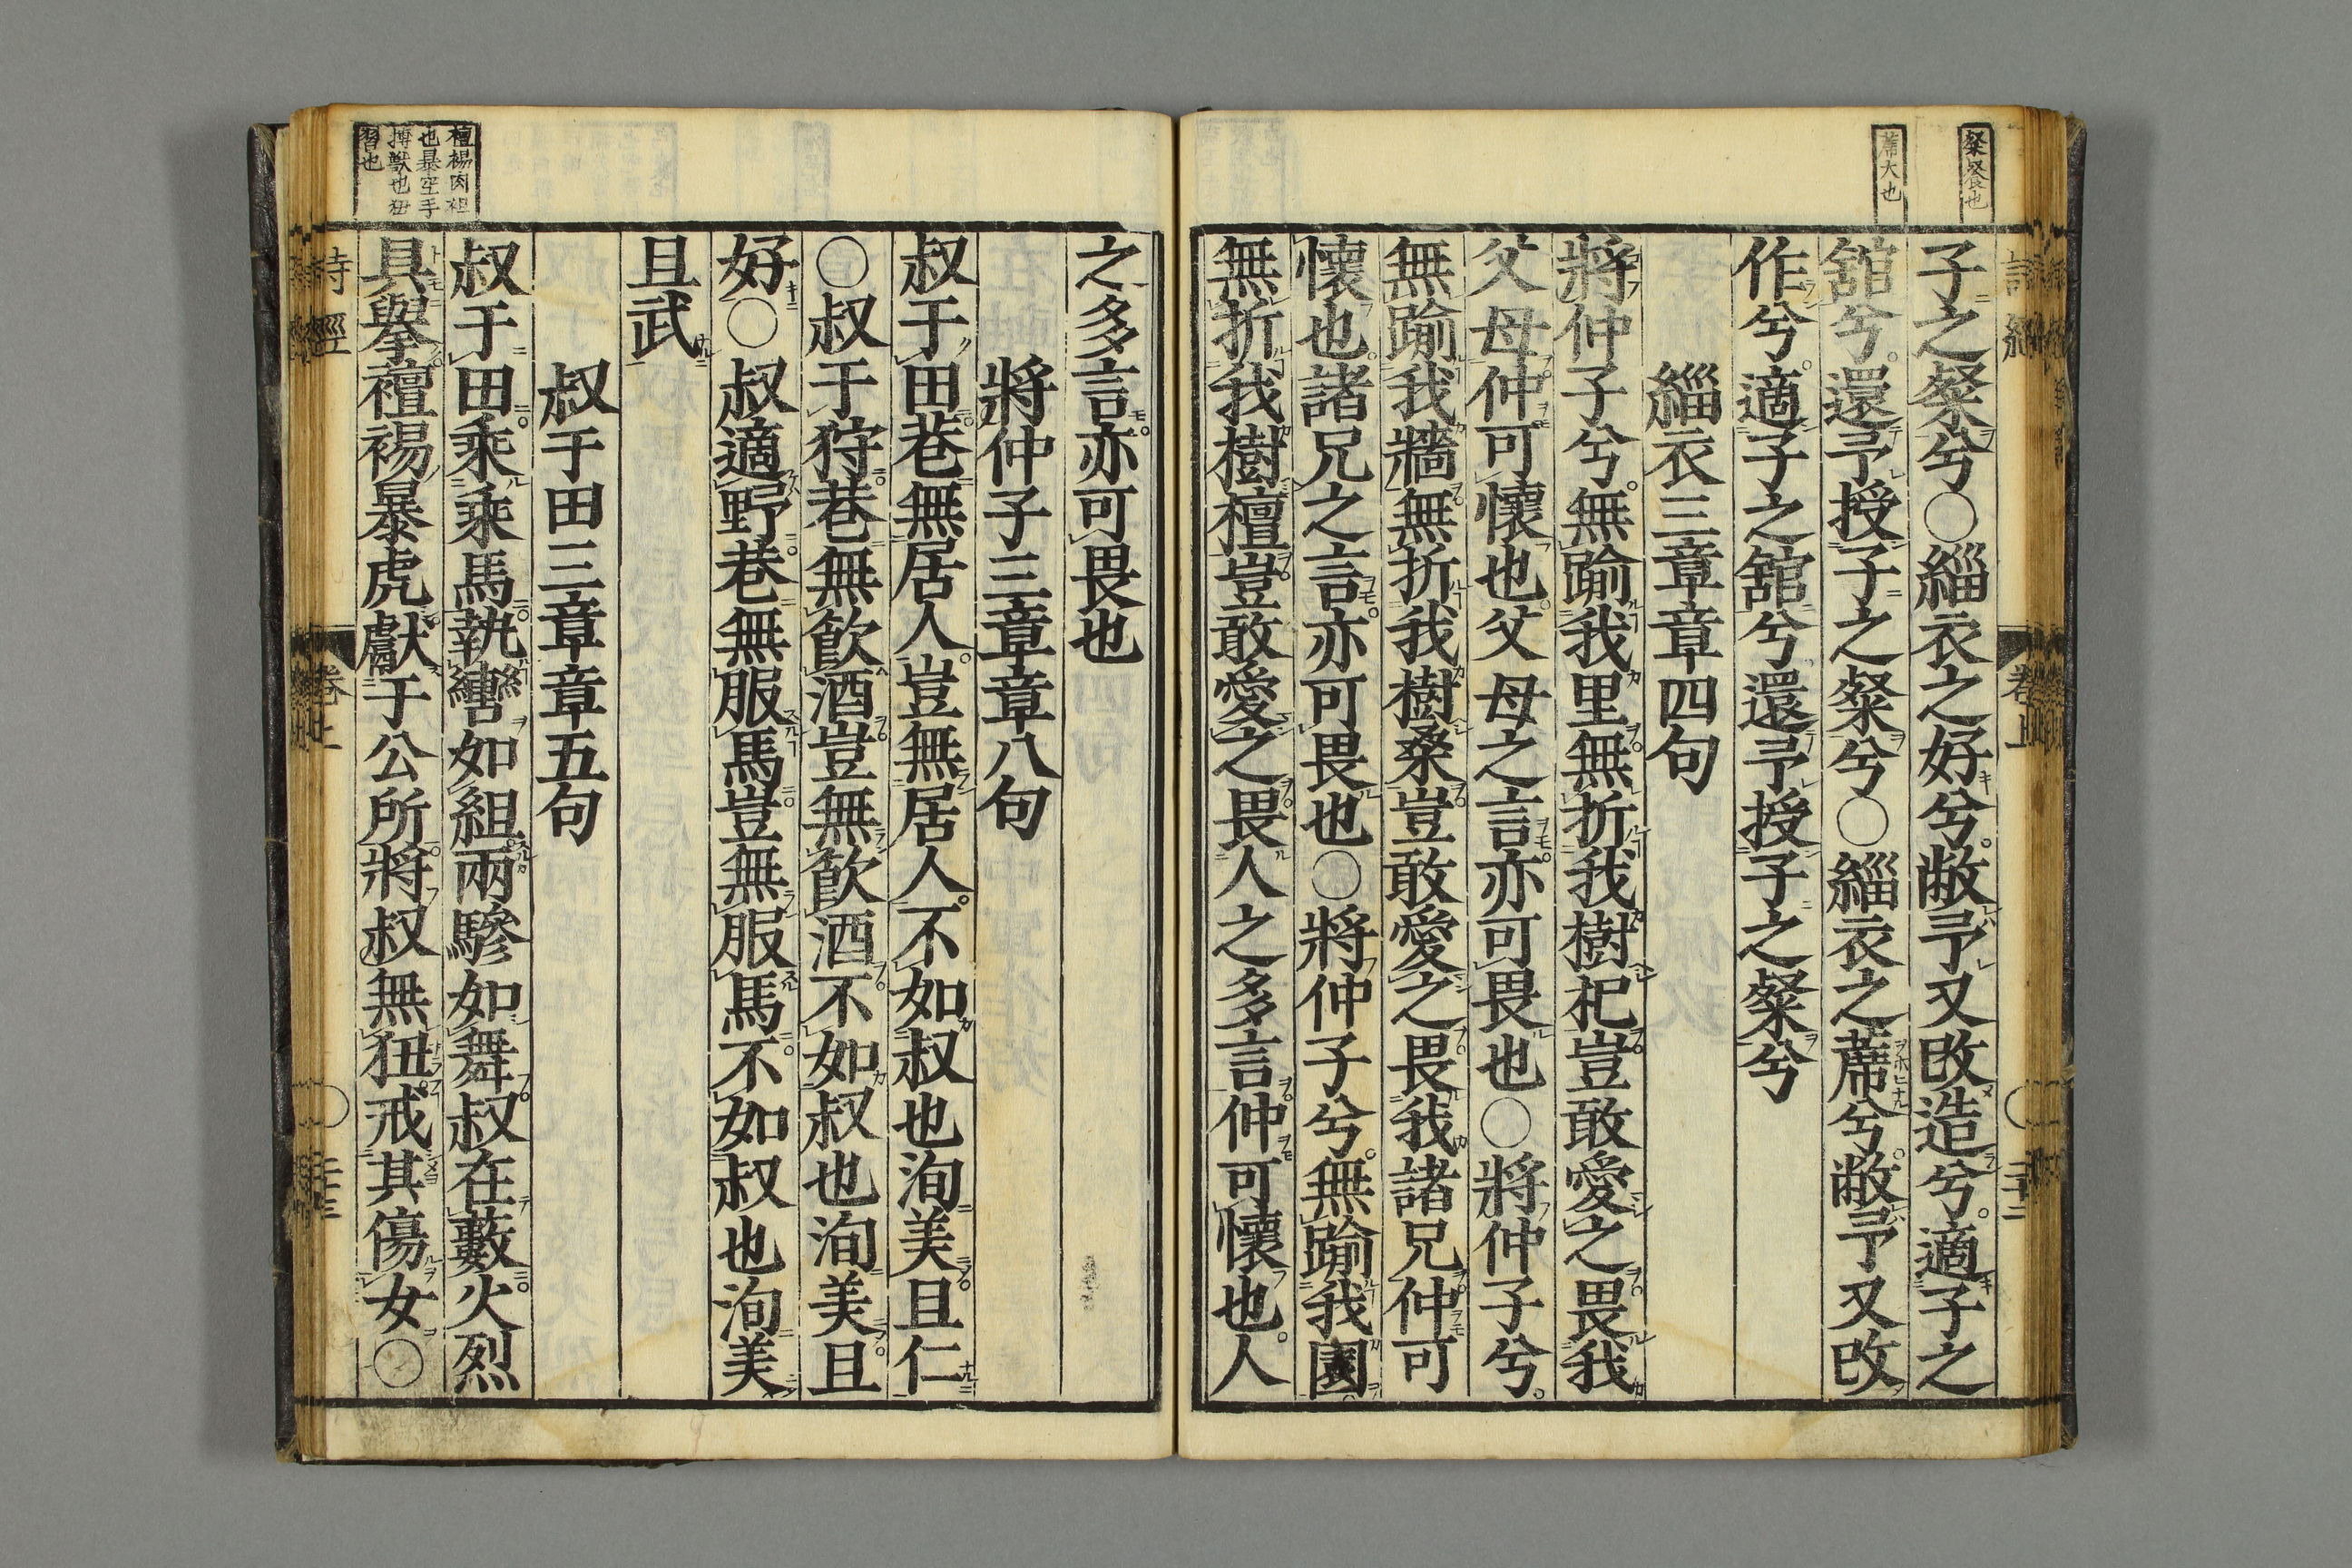 粲餐也
蓆大也
子之粲兮○緇衣之好兮敝予又改造兮適子之
舘兮還予授子之粲兮○緇衣之蓆兮敝予又改
作兮適子之舘兮還予授子之粲兮
緇衣三章章四句
將仲子兮無踰我里無折我樹杞豈敢愛之畏我
父母仲可懷也父母之言亦可畏也○將仲子兮
無踰我牆無折我樹桑豈敢愛之畏我諸兄仲可
懷也諸兄之言亦可畏也○將仲子兮無踰我園
無折我樹檀豈敢愛之畏人之多言仲可懷也人
之多言亦可畏也
將仲子三章章八句
叔于田巷無居人豈無居人不如叔也洵美且仁
○叔于狩巷無飮酒豈無飮酒不如叔也洵美且
好○叔適野巷無服馬豈無服馬不如叔也洵美
且武
叔于田三章章五句
叔于田乘乘馬執轡如組兩驂如舞叔在藪火烈
具擧襢裼暴虎獻于公所將叔無狃戒其傷女○
襢裼肉袒
也暴空手
搏獸也狃
習也
詩經
卷上